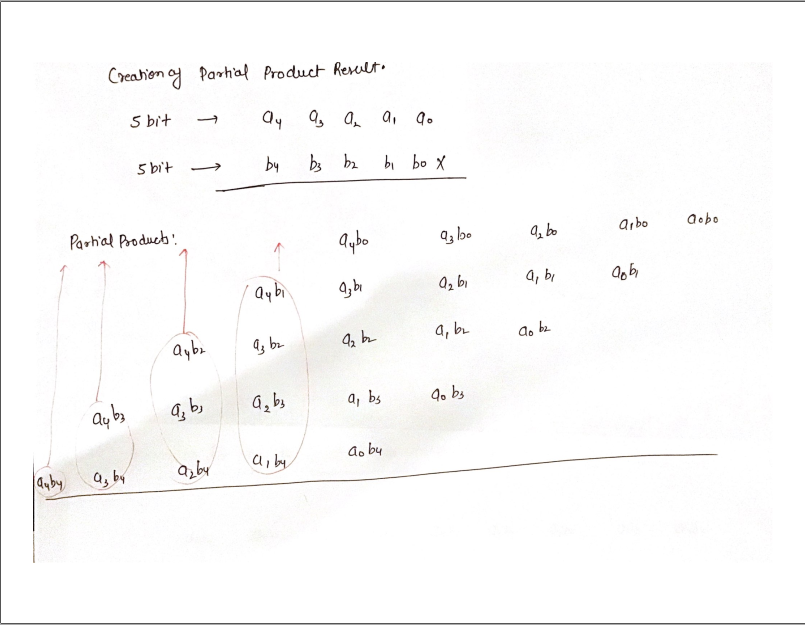 Creation of Partial Product Result.
5 bit → a4 a3 a2 a1 a0
5 bit → b4 b3 b2 b1 b0 X
Partial Products: a4b0 a3b0 a2b0 a1b0 a0b0
a4b1 a3b1 a2b1 a1b1 a0b1
a4b2 a3b2 a2b2 a1b2 a0b2
a4b3 a3b3 a2b3 a1b3 a0b3
a4b4 a3b4 a2b4 a1b4 a0b4